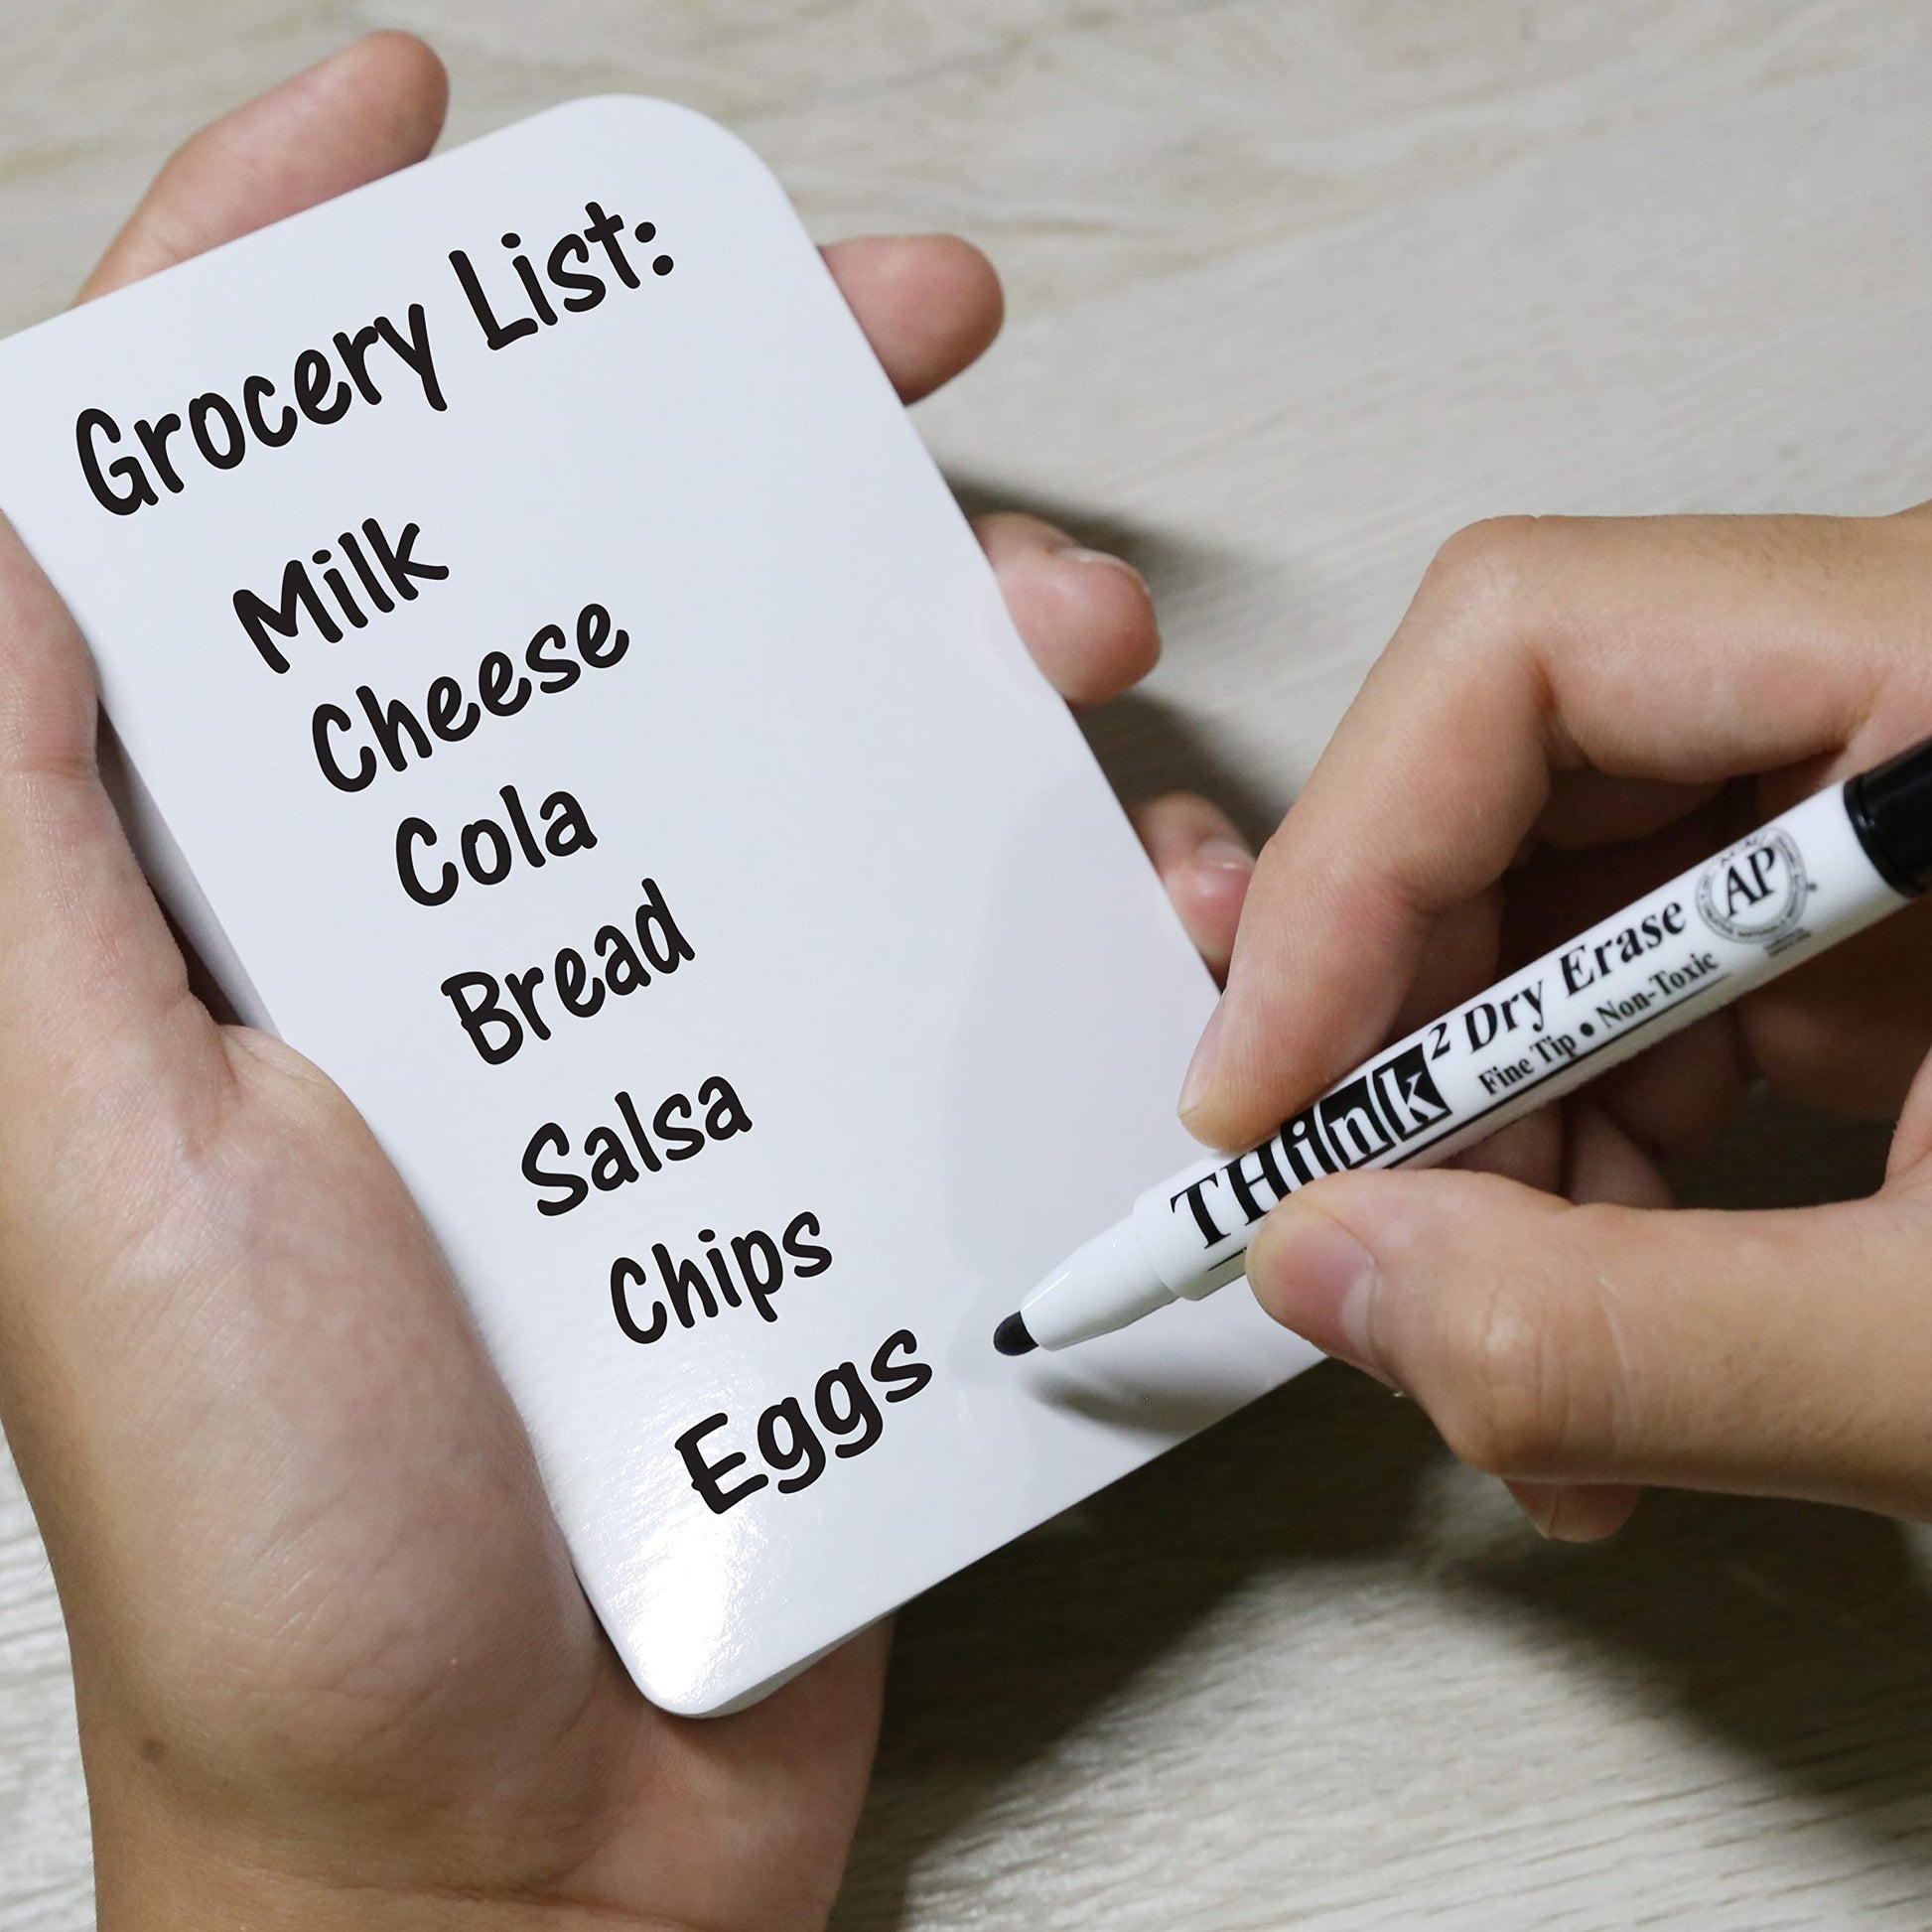 Grocery List:
Milk
Cheese
Cola
Bread
Salsa
Chips
Eggs
THink² Dry Erase
Fine Tip • Non-Toxic
AP